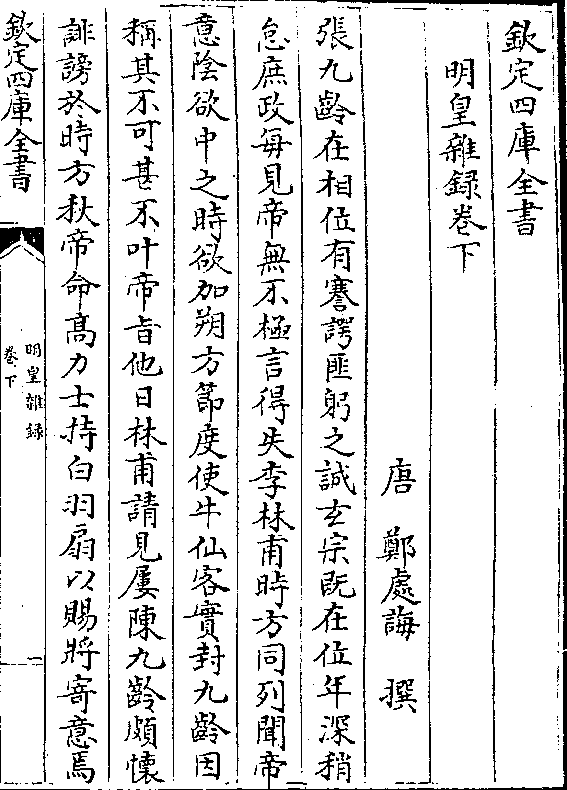 欽定四庫全書
明皇雜録卷下
唐 鄭處誨 撰
張九齡在相位有謇諤匪躬之誠玄宗既在位年深稍
怠庶政每見帝無不極言得失李林甫時方同列聞帝
意陰欲中之時欲加朔方節度使牛仙客實封九齡因
稱其不可甚不叶帝旨他日林甫請見屢陳九齡頗懷
誹謗於時方秋帝命髙力士持白羽扇以賜將寄意焉
欽定四庫全書
明皇雜録
卷下
一